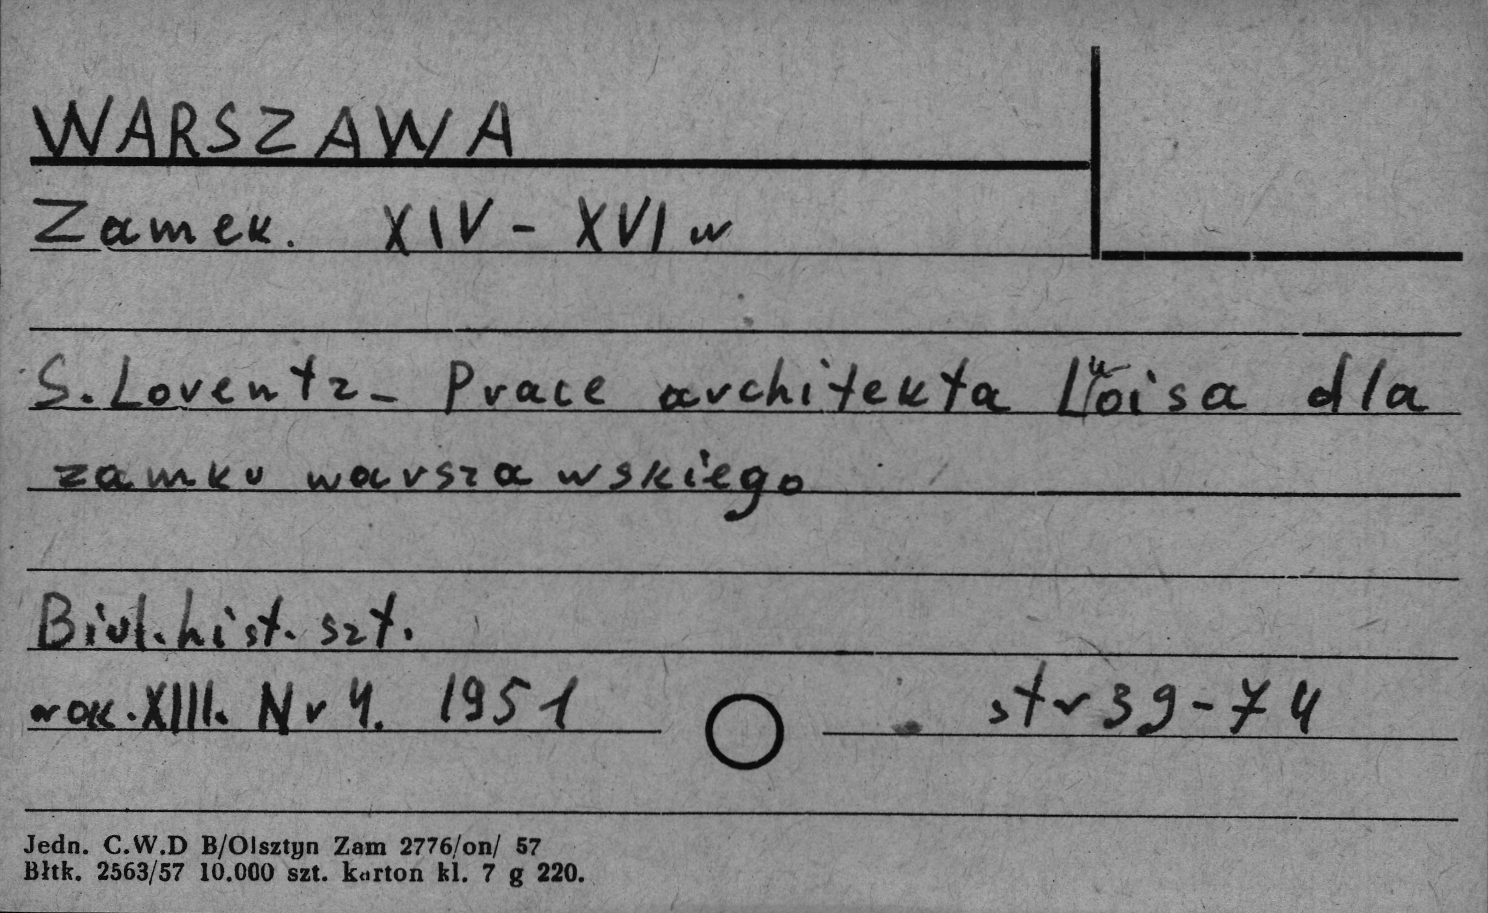 WARSZAWA
Zamek. XIV - XVI w
S. Lorentz - Prace architekta Luoisa dla
zamku warszawskiego
Biul. hist. szt.
rok. XIII. Nr 4. 1951 str 39-74
Jedn. C.W.D B/Olsztyn Zam 2776/on/ 57
Błtk. 2563/57 10.000 szt. karton kl. 7 g 220.